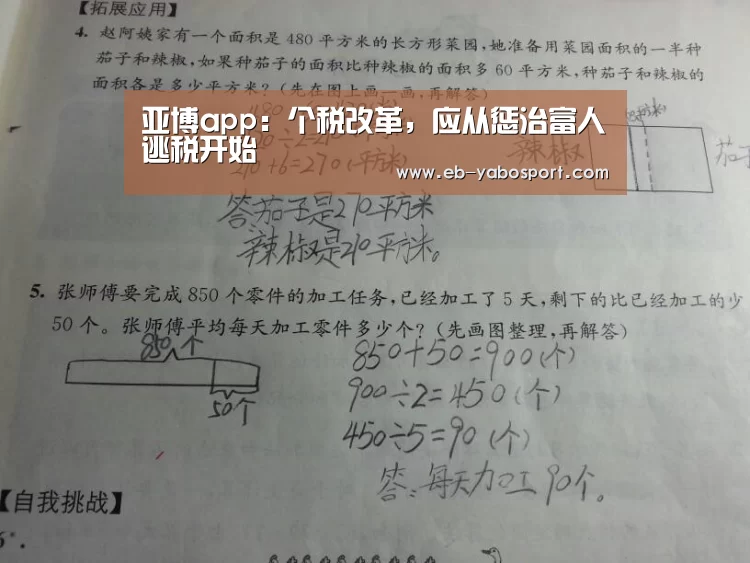 【拓展应用】
4. 赵阿姨家有一个面积是480平方米的长方形菜园,她准备用菜园面积的一半种
茄子和辣椒,如果种茄子的面积比种辣椒的面积多60平方米,种茄子和辣椒的
面积各是多少平方米?(先在图上画一画,再解答)
亚博app：个税改革，应从惩治富人
逃税开始
www.eb-yabosport.com
辣椒
茄子
210+6=270(平方米)
答:茄子是270平方米
辣椒是210平方米。
5. 张师傅要完成850个零件的加工任务,已经加工了5天,剩下的比已经加工的少
50个。张师傅平均每天加工零件多少个?(先画图整理,再解答)
850个
50个
850+50=900(个)
900÷2=450(个)
450÷5=90(个)
答:每天加工90个。
【自我挑战】
6*.